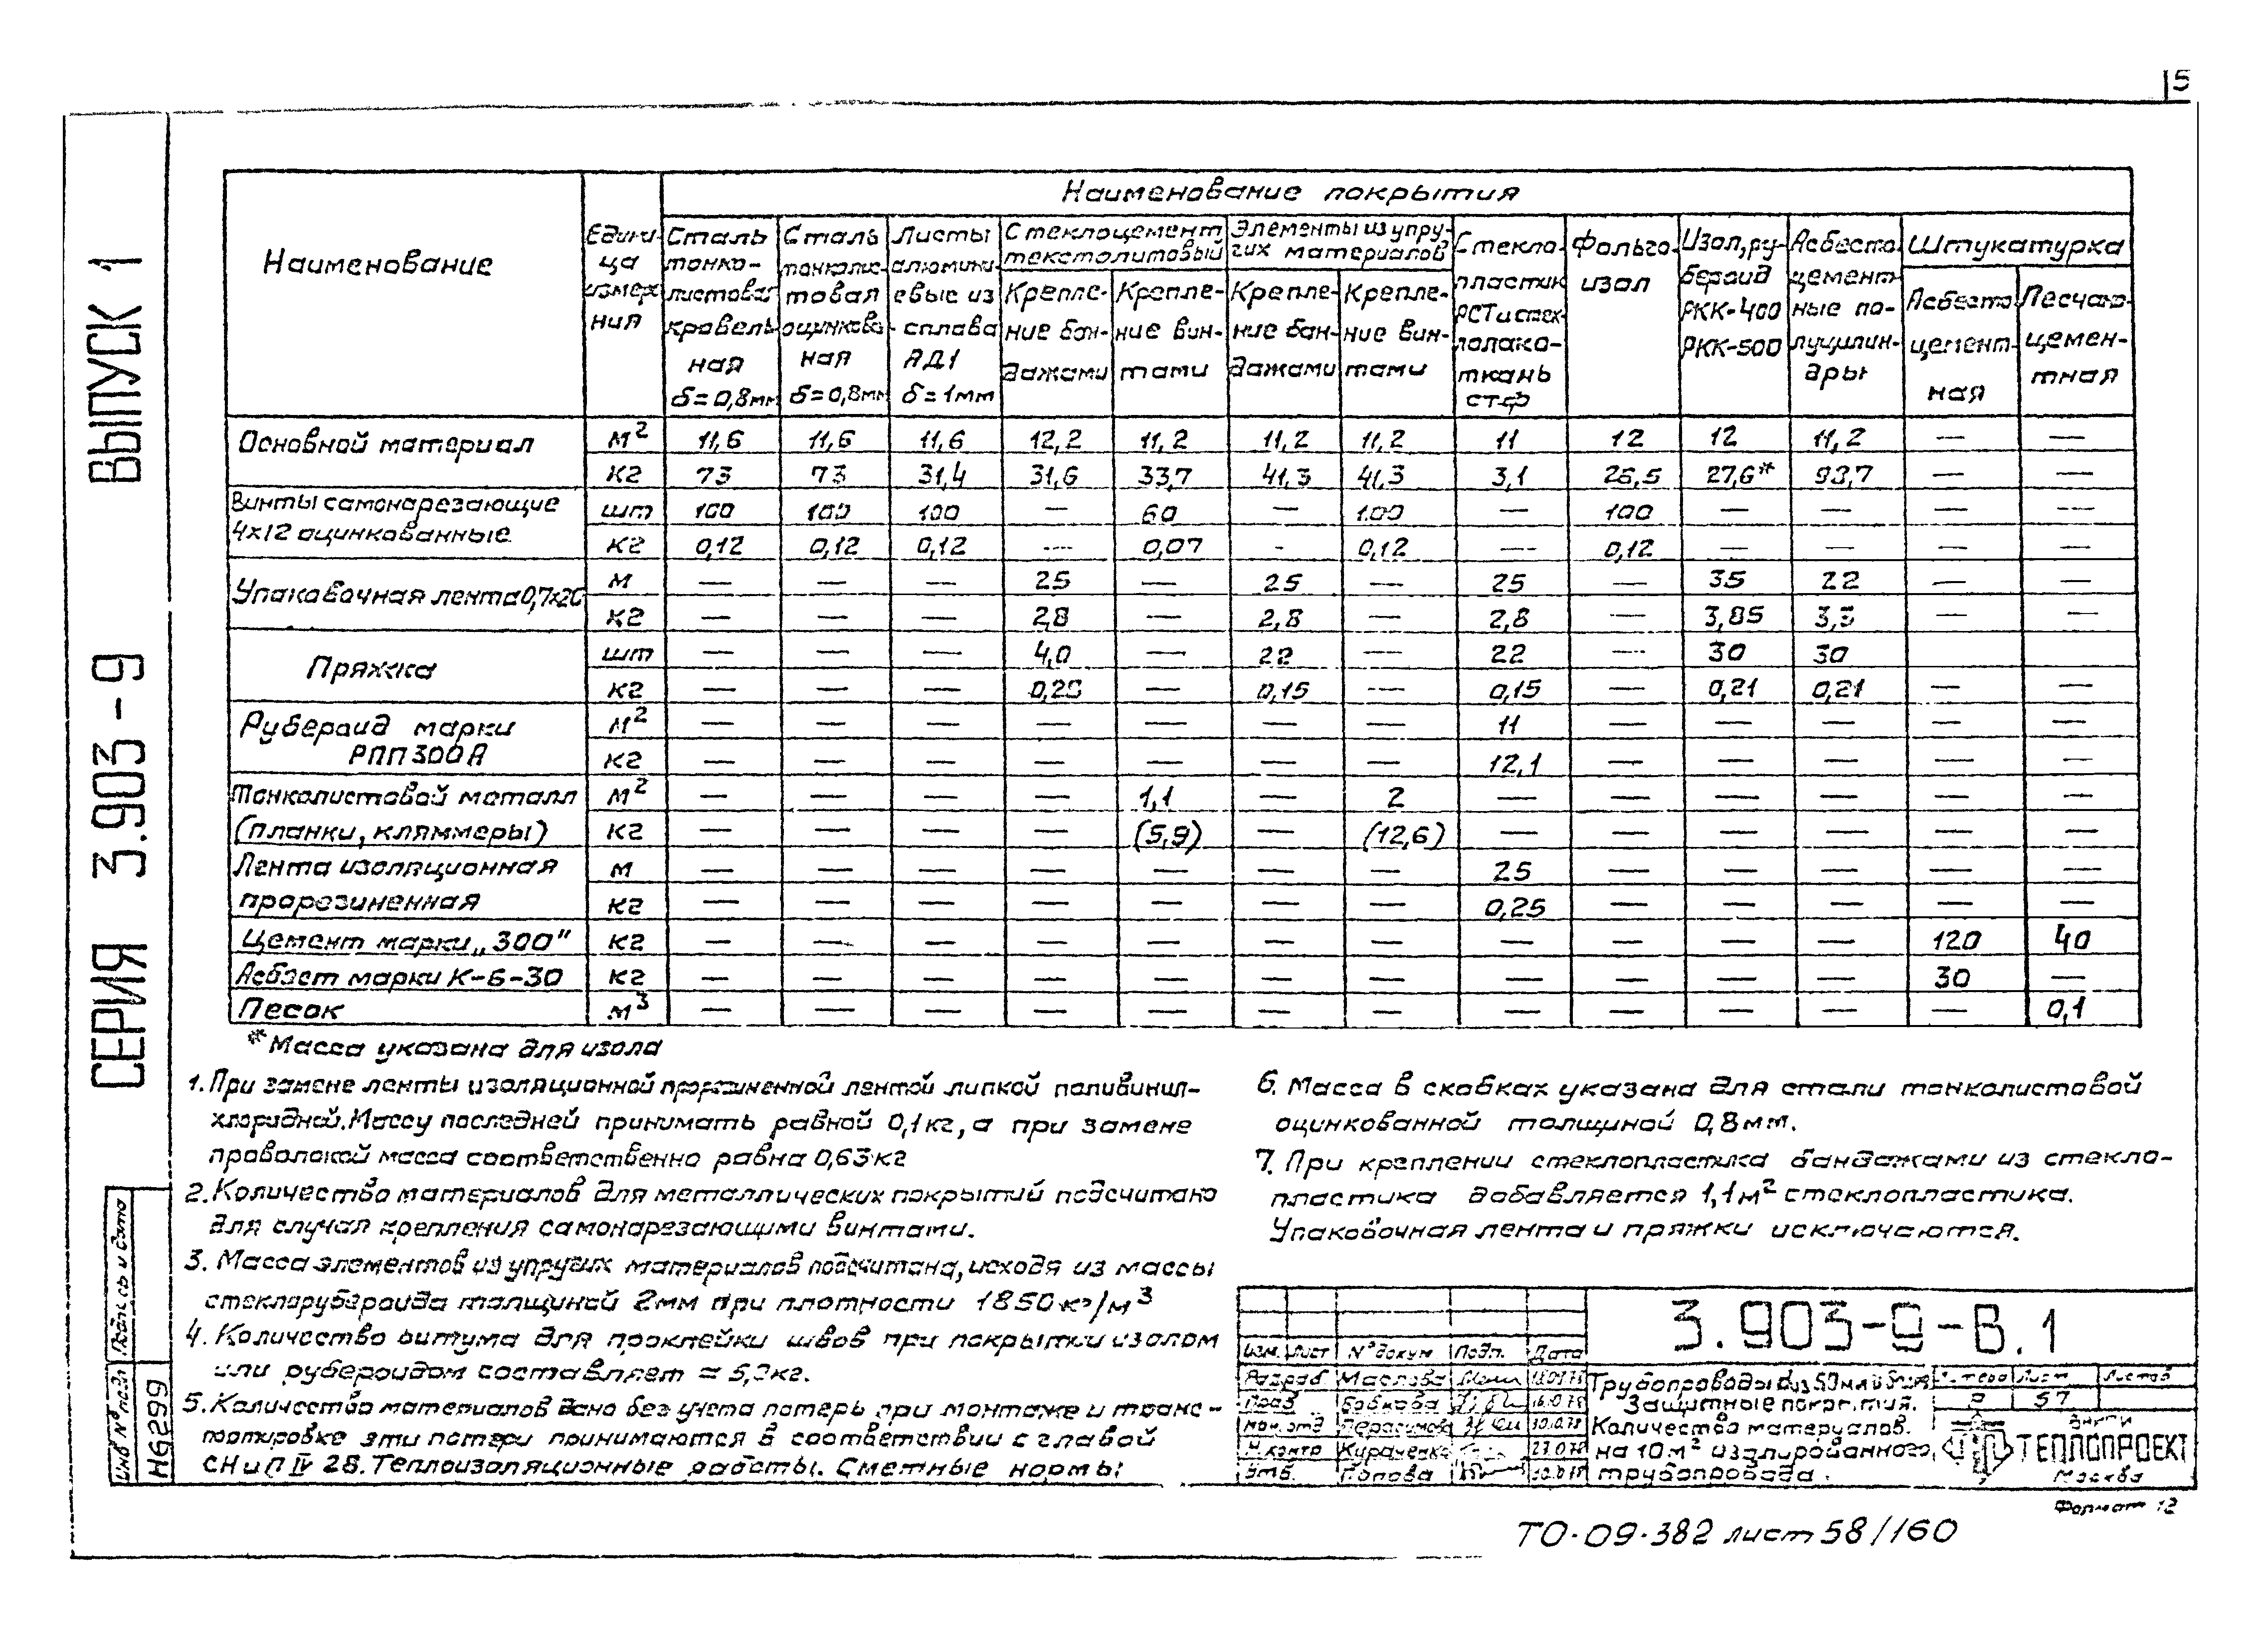 5
ВЫПУСК 1
СЕРИЯ 3.903-9
Наименование
Едини-
ца
измере
ния
Наименование покрытия
Сталь
тонко-
листовая
кровель
ная
δ=0,8мм
Сталь
тонколис-
товая
оцинкова
ная
δ=0,8мм
Листы
алюмини-
евые из
сплава
АД1
δ=1мм
Стеклоцемент
текстолитовый
Крепле-
ние бан-
дажами
Крепле-
ние вин-
тами
Элементы из упру-
гих материалов
Крепле-
ние бан-
дажами
Крепле-
ние вин-
тами
Стекло-
пластик
РСТ и стек-
лопако-
ткань
СТФ
Фольго-
изол
Изол, ру-
бероид
РКК-400
РКК-500
Асбесто
цемент-
ные по-
луцилин-
дры
Штукатурка
Асбесто
цемент-
ная
Песчано-
цемен-
тная
Основной материал м² 11,6 11,6 11,6 12,2 11,2 11,2 11,2 11 12 12 11,2 — —
кг 73 73 31,4 31,6 33,7 41,3 41,3 3,1 26,5 27,6* 93,7 — —
Винты самонарезающие шт 100 100 100 — 60 — 100 — 100 — — — —
4х12 оцинкованные кг 0,12 0,12 0,12 — 0,07 - 0,12 — 0,12 — — — —
Упаковочная лента 0,7х20 м — — — 25 — 25 — 25 — 35 22 — —
кг — — — 2,8 — 2,8 — 2,8 — 3,85 3,3 — —
Пряжка шт — — — 4,0 — 22 — 22 — 30 30
кг — — — 0,28 — 0,15 — 0,15 — 0,21 0,21 — —
Рубероид марки м² — — — — — — — 11 — — — — —
РПП 300А кг — — — — — — — 12,1 — — — — —
Тонколистовой металл м² — — — — 1,1 — 2 — — — — — —
(планки, кляммеры) кг — — — — (5,9) — (12,6) — — — — — —
Лента изоляционная м — — — — — — — 25 — — — — —
прорезиненная кг — — — — — — — 0,25 — — — — —
Цемент марки „300" кг — — — — — — — — — — — 120 40
Асбест марки К-6-30 кг — — — — — — — — — — — 30 —
Песок м³ — — — — — — — — — — — — 0,1
*Масса указана для изола
1. При замене ленты изоляционной прорезиненной лентой липкой поливинил-
хлоридной. Массу последней принимать равной 0,1кг, а при замене
проволокой масса соответственно равна 0,63кг
2. Количество материалов для металлических покрытий подсчитано
для случая крепления самонарезающими винтами.
3. Масса элементов из упругих материалов подсчитана, исходя из массы
стеклорубероида толщиной 2мм при плотности 1850кг/м³
4. Количество битума для проклейки швов при покрытии изолом
или рубероидом составляет ≈ кг.
5. Количество материалов дано без учета потерь при монтаже и транс-
портировке эти потери принимаются в соответствии с главой
СНиП IV 28. Теплоизоляционные работы. Сметные нормы
6. Масса в скобках указана для стали тонколистовой
оцинкованной толщиной 0,8мм.
7. При креплении стеклопластика бандажами из стекло-
пластика добавляется 1,1м² стеклопластика.
Упаковочная лента и пряжки исключаются.
Подпись и дата
Инв № подл
Н6299
3.903-9-В.1
Изм. Лист № докум Подп. Дата
Разраб Маслова
Пров Бобкова
Нач. отд Герасимова
Н. контр Кураченко
Утв. Попова
Трубопроводы
Защитные покрытия.
Количество материалов.
на 10м² изолированного
трубопровода.
Литера Лист Листов
Р 57
ВНИПИ
ТЕПЛОПРОЕКТ
Москва
Формат 12
ТО-09-382 лист 58/160